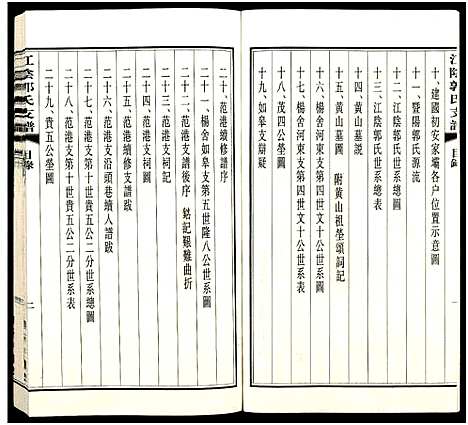 江陰郭氏支譜 目錄
十、建國初安家壩各户位置示意圖
十一、暨陽郭氏源流
十二、江陰郭氏世系總圖
十三、江陰郭氏世系總表
十四、黃山墓說
十五、黃山墓圖 附黃山祖塋頌詞記
十六、楊舍河東支第四世文十公世系圖
十七、楊舍河東支第四世文十公世系表
十八、茂四公塋圖
十九、如皋支辯疑
二十、楊舍如皋支第五世隆八公世系圖
二十一、范港續修支譜序
二十二、范港支譜後序 銘記艱難曲折
二十三、范港支祠記
二十四、范港支祠圖
二十五、范港續修支譜跋
二十六、范港支沿頭巷續入譜跋
二十七、范港支第十世貴五公二分世系總圖
二十八、范港支第十世貴五公二分世系總表
二十九、貴五公塋圖
江陰郭氏支譜 目錄 二